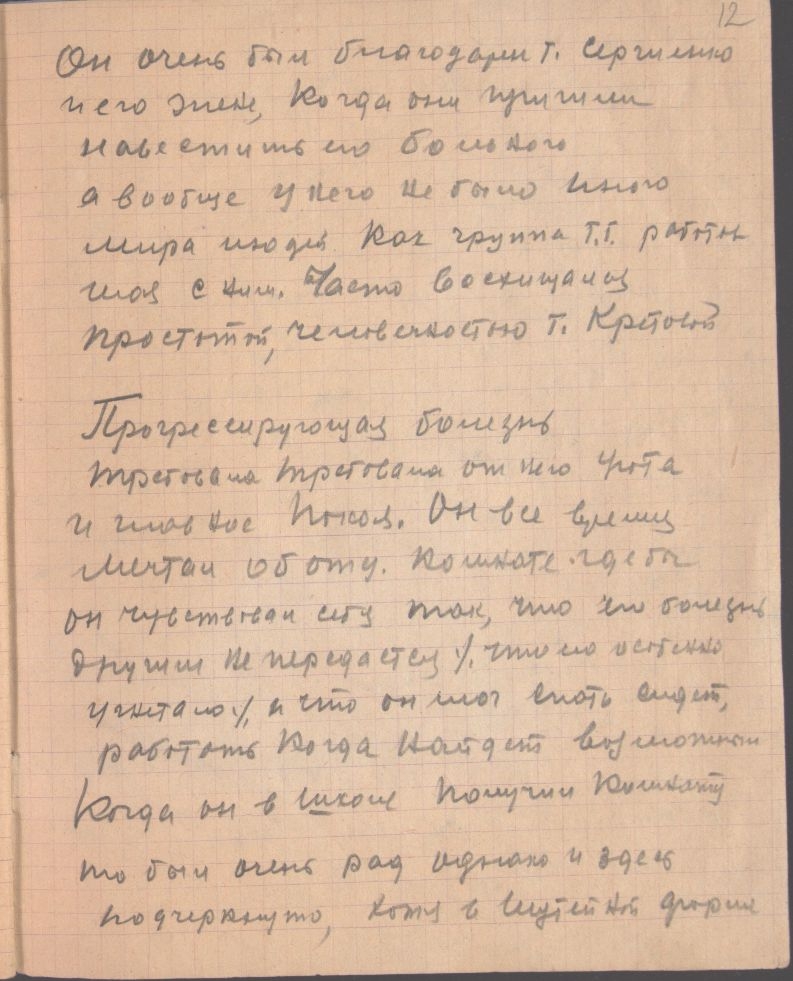 12
Он очень был благодарен т. Сергиенко
и его жене, когда они пришли
навестить его больного
а вообще у него не было иного
мира людей как группа т.т. работав
шая с ним. Часто восхищался
простотой, человечностью т. Кретовой
Прогрессирующая болезнь
требовала требовала от него уюта
и главное покоя. Он все время
мечтал об отд. комнате где бы
он чувствовал себя так, что его болезнь
другим не передается /, что его особенно
угнетало /, и что он мог спать сидеть,
работать когда найдет возможным
Когда он в школе получил комнату
то был очень рад однако и здесь
подчеркнуто, хотя в шутейной форме